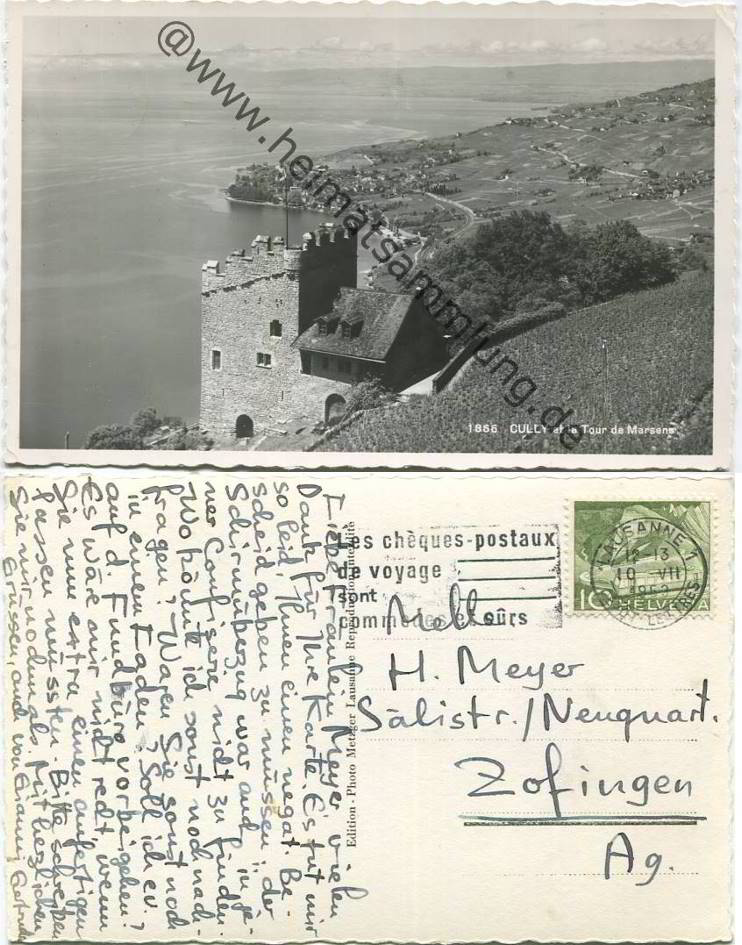 @www.heimatsammlung.de
1866 CULLY et la Tour de Marsens
Liebe Fräulein Meyer, vielen
Dank für Ihre Karte. Es tut mir
so leid, Ihnen einen negat. Be-
scheid geben zu müssen, der
Schirmüberzug war auch in je-
ner Confiserie nicht zu finden.
Wo könnte ich sonst noch nach-
fragen? Waren Sie sonst noch
in einem Laden? Soll ich ev.
auf d. Fundbüro vorbeigehen?
Es wäre mir nicht recht, wenn
Sie nun extra einen anfertigen
lassen müssten. Bitte schreiben
Sie mir nochmals. Mit herzlichen
Grüssen, auch von
Edition - Photo Metzger Lausanne Reproduction interdite
Les chèques-postaux
de voyage
sont
commodes et sûrs
LAUSANNE 1
12-13
10 VII
EXP. LETTRES
10 HELVETIA
Melle
H. Meyer
Sälistr./Neuquart.
Zofingen
Ag.